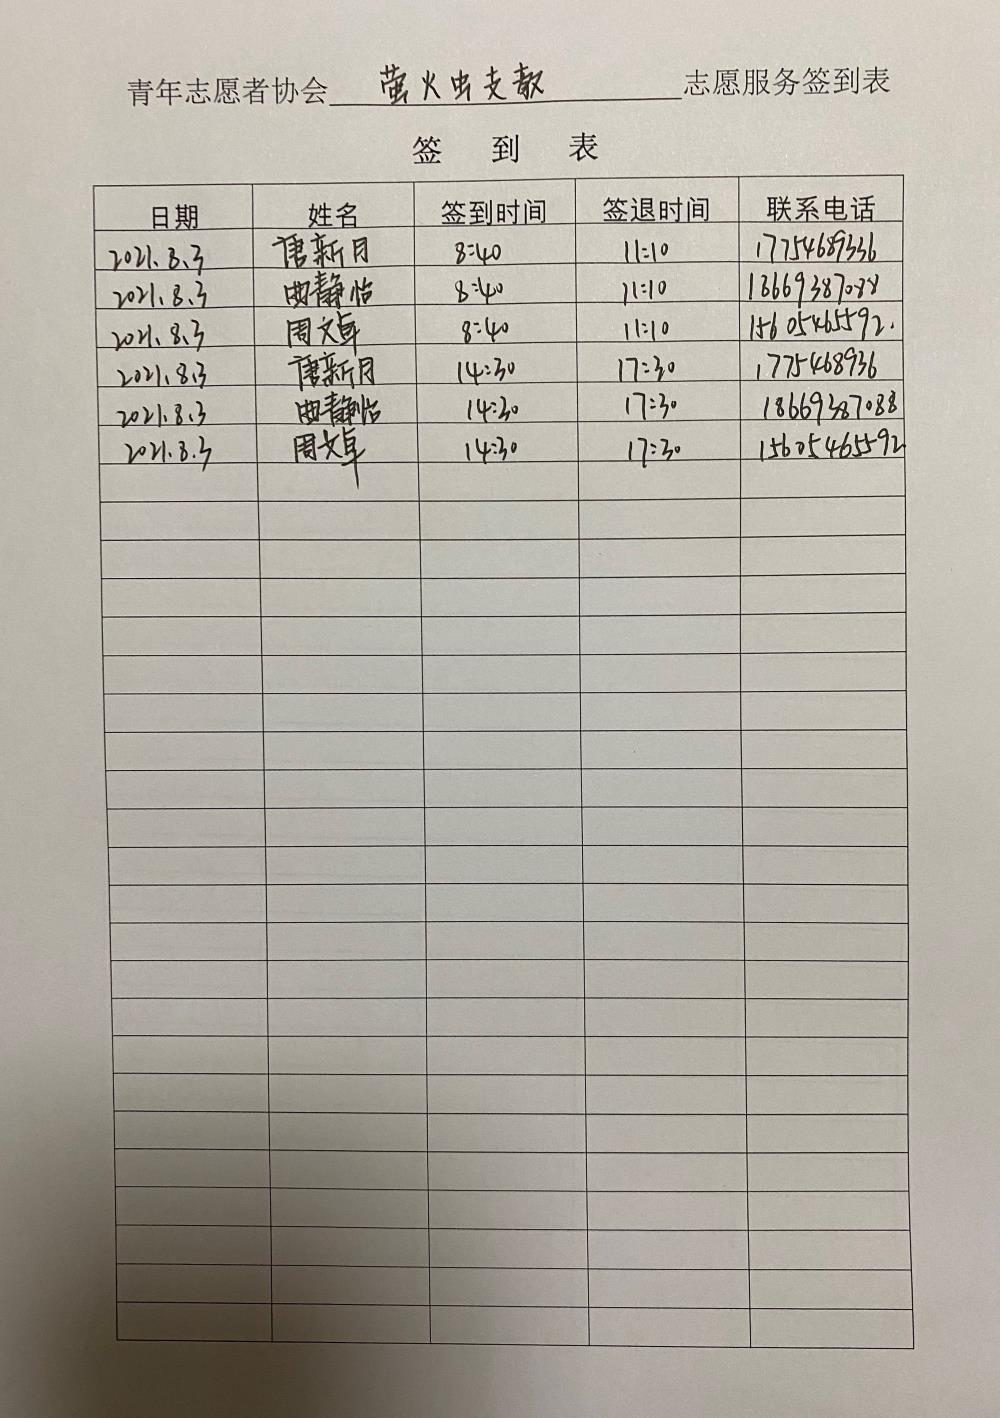 青年志愿者协会 萤火虫支教 志愿服务签到表
签 到 表
日期 姓名 签到时间 签退时间 联系电话
2021.8.3 唐新月 8:40 11:10 17754689336
2021.8.3 曲静怡 8:40 11:10 18669387088
2021.8.3 周文卓 8:40 11:10 15605465592.
2021.8.3 唐新月 14:30 17:30 1775468936
2021.8.3 曲静怡 14:30 17:30 18669387088
2021.8.3 周文卓 14:30 17:30 15605465592